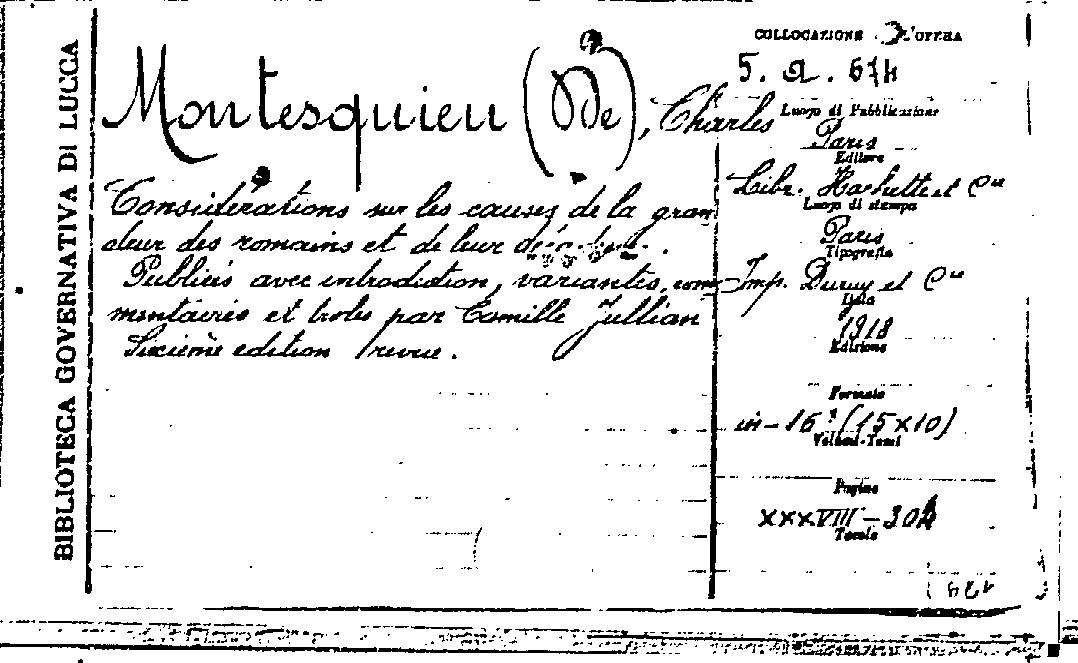 BIBLIOTECA GOVERNATIVA DI LUCCA
Montesquieu (De), Charles
Considérations sur les causes de la gran
deur des romains et de leur
Publiées avec introduction, variantes, com
mentaires et par Camille Jullian
Sixième edition revue.
COLLOCAZIONE DELL'OPERA
5. a. 674
Luogo di Pubblicazione
Paris
Editore
Libr. Hachette et Cie
Luogo di stampa
Paris
Tipografia
Imp. Duruy et Cie
Data
1918
Edizione
Formato
in-16° (15x10)
Volumi-Tomi
Pagine
XXXVIII-304
Tavole